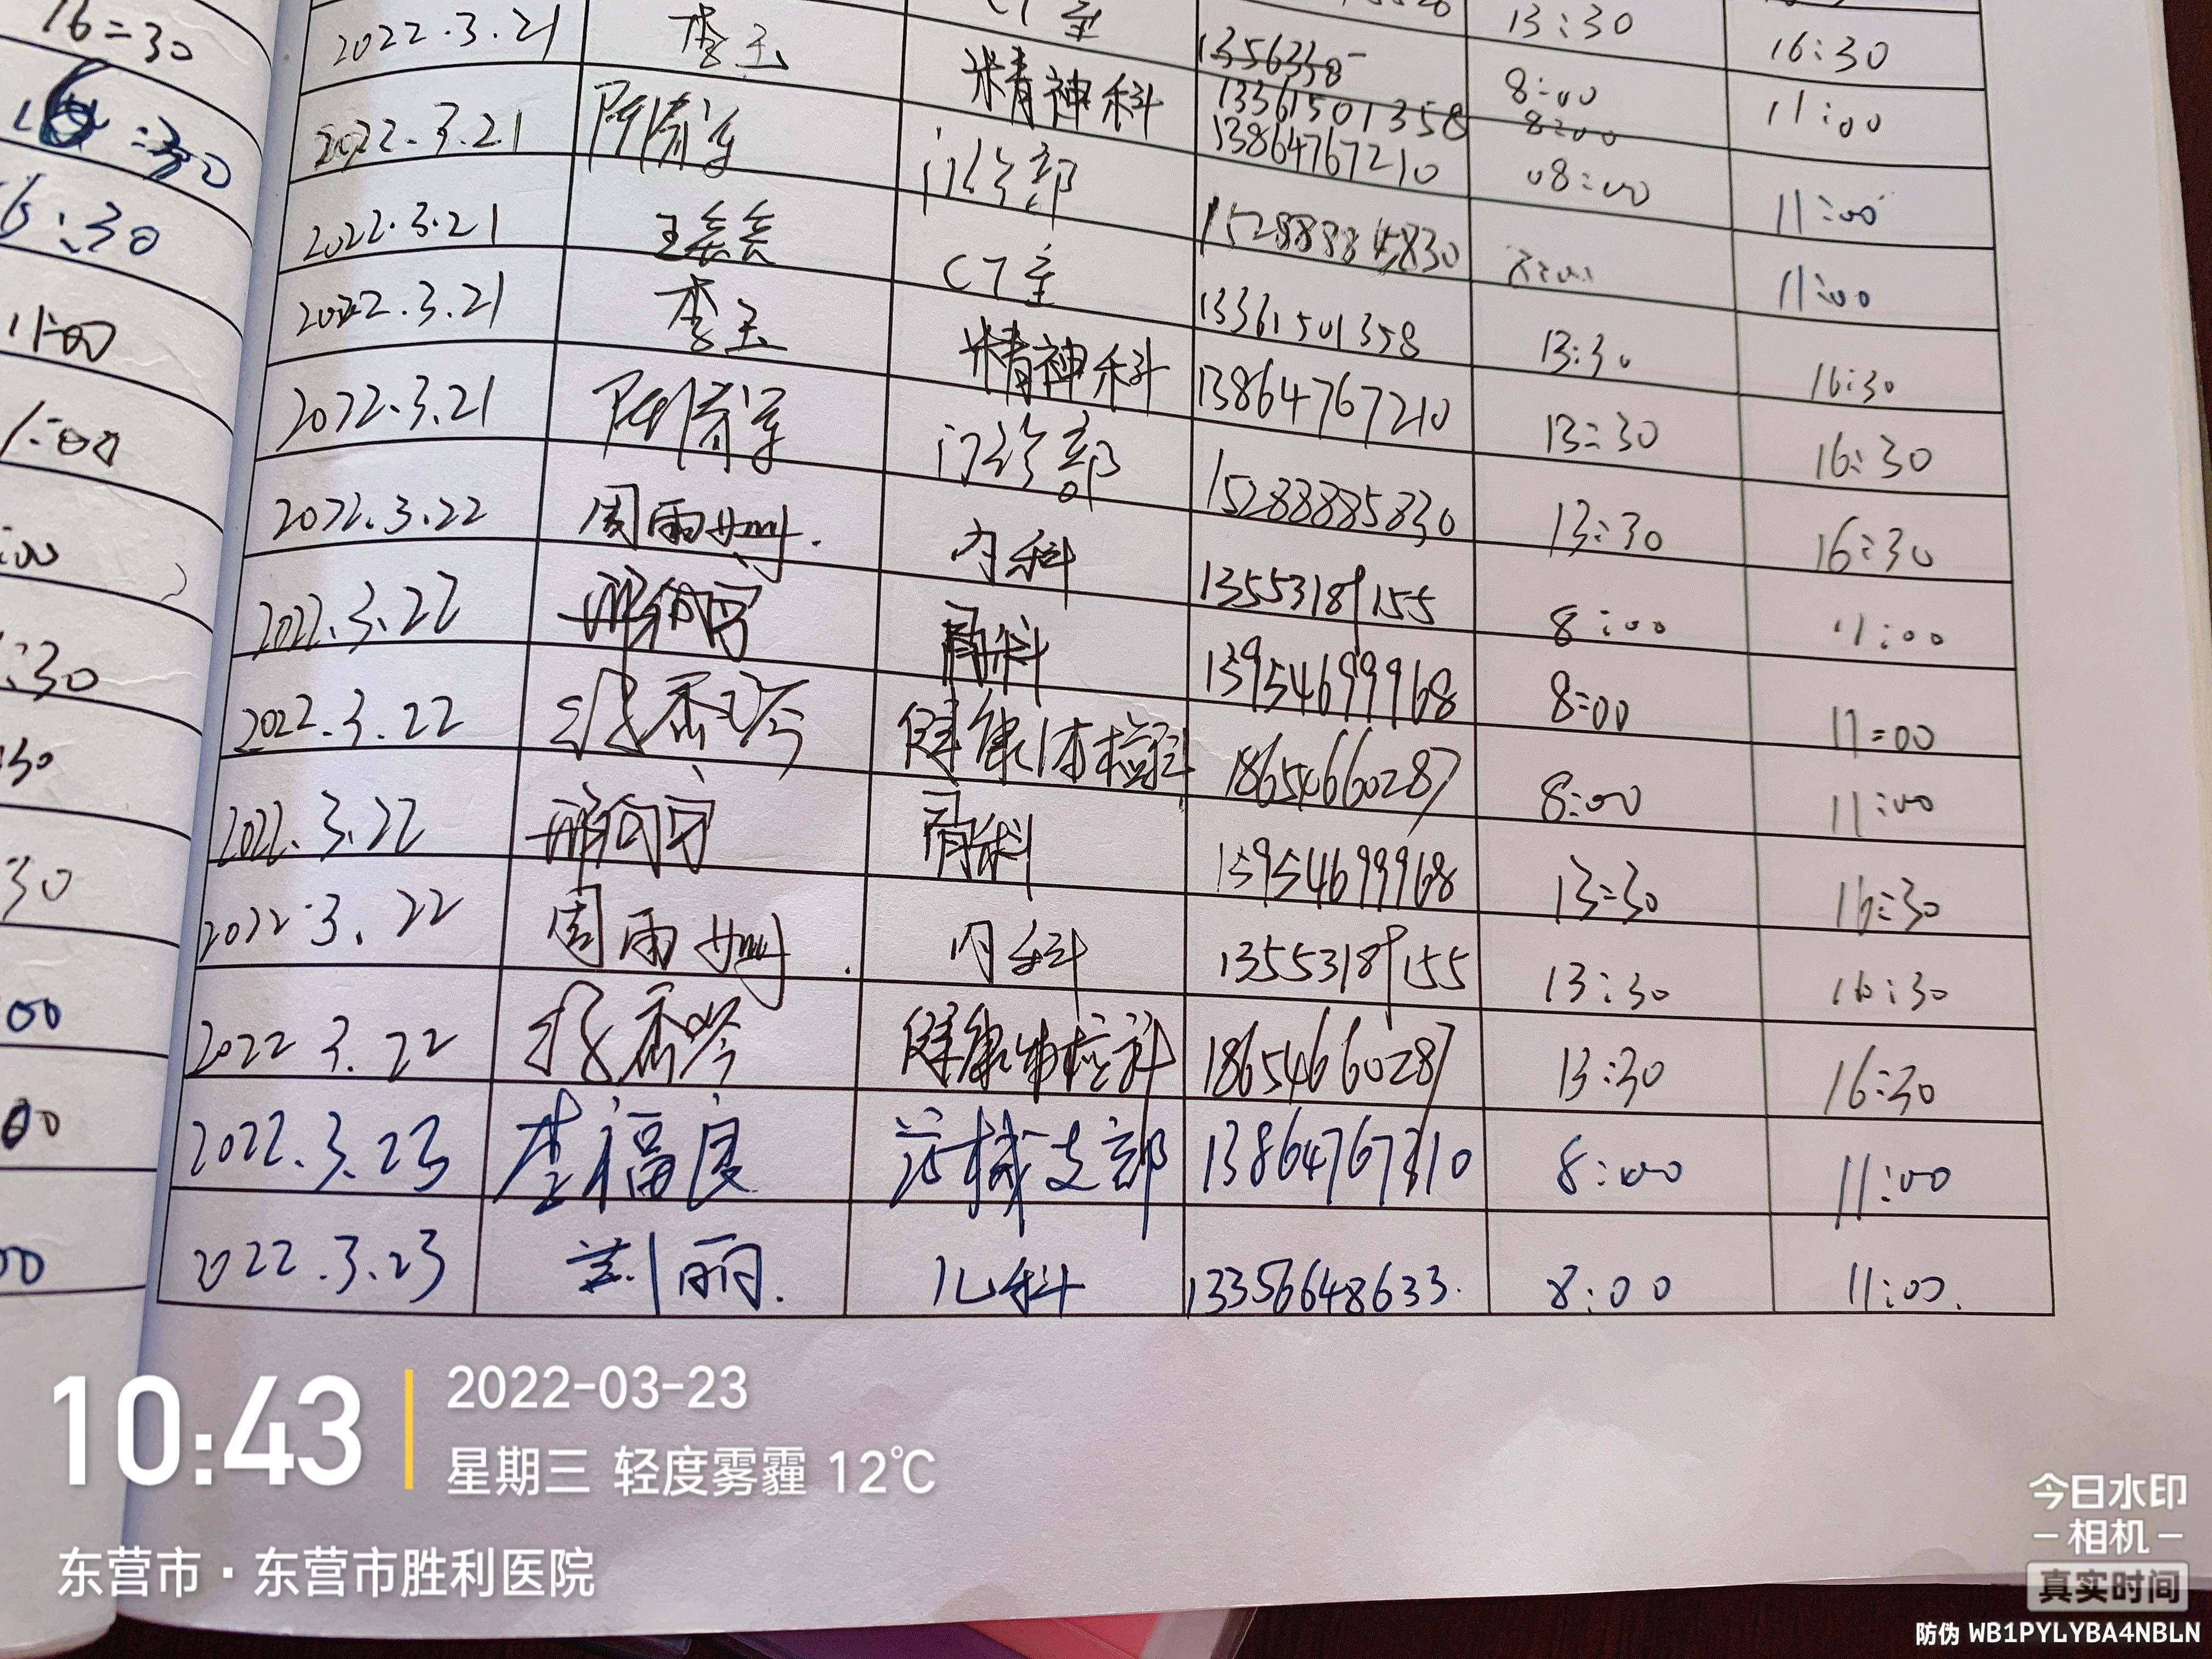 16:30
:30
6:30
11:00
1:00
:00
:30
:30
30
00
00
00
CT室 13:30
2022.3.21 李玉 精神科 13361501358 8:00 16:30
2022.3.21 门诊部 13864767210 08:00 11:00
2022.3.21 王 CT室 11:00
2022.3.21 李玉 精神科 13361501358 13:30 11:00
2022.3.21 门诊部 13864767210 13:30 16:30
2022.3.22 周雨 内科 15288885830 13:30 16:30
2022.3.22 骨科 13553189155 8:00 16:30
2022.3.22 健康体检科 13954699968 8:00 11:00
2022.3.22 骨科 18654660287 8:00 11:00
2022.3.22 周雨 内科 13954699968 13:30 11:00
2022.3.22 健康体检科 13553189155 13:30 16:30
18654660287 13:30 16:30
2022.3.23 李福良 支部 8:00 16:30
11:00
2022.3.23 刘丽. 儿科 13356648633. 8:00 11:00.
10:43
2022-03-23
星期三 轻度雾霾 12℃
东营市·东营市胜利医院
今日水印
-相机-
真实时间
防伪 WB1PYLYBA4NBLN